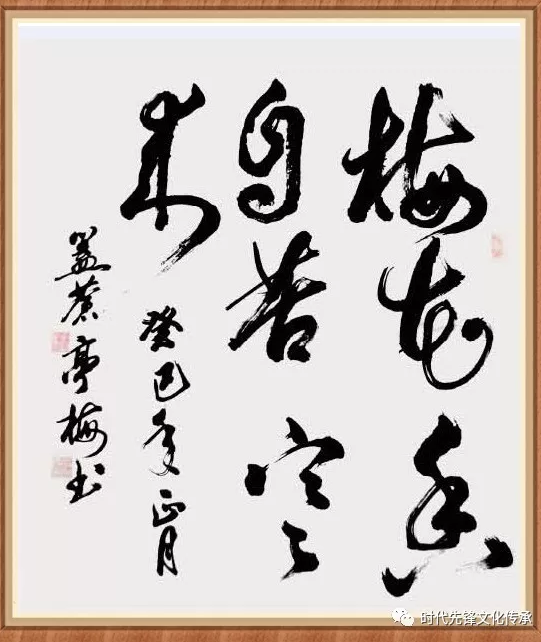 梅花香
自苦寒
来
癸巳年正月
盖苍亭梅书
时代先锋文化传承